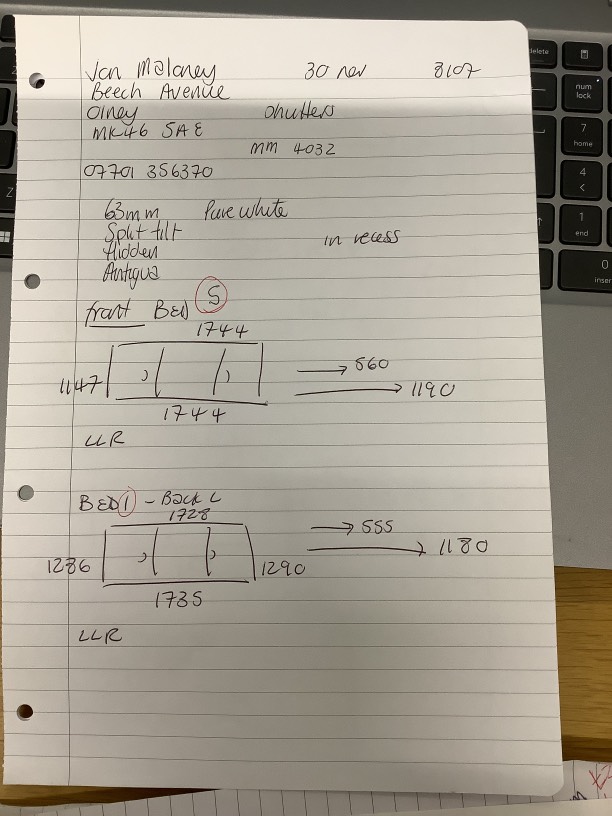 Jan Maloney 30 nov 3107
Beech Avenue
Olney Shutters
MK46 5AE
MM 4032
07701 356370
63mm Pure white
Split tilt
Hidden in recess
Antigua
front BED 5
1744
1147 560
1190
1744
LLR
BED 1 - Back L
1728
555
1286 1290 1180
1735
LLR
delete
num
lock
7
home
4
1
end
0